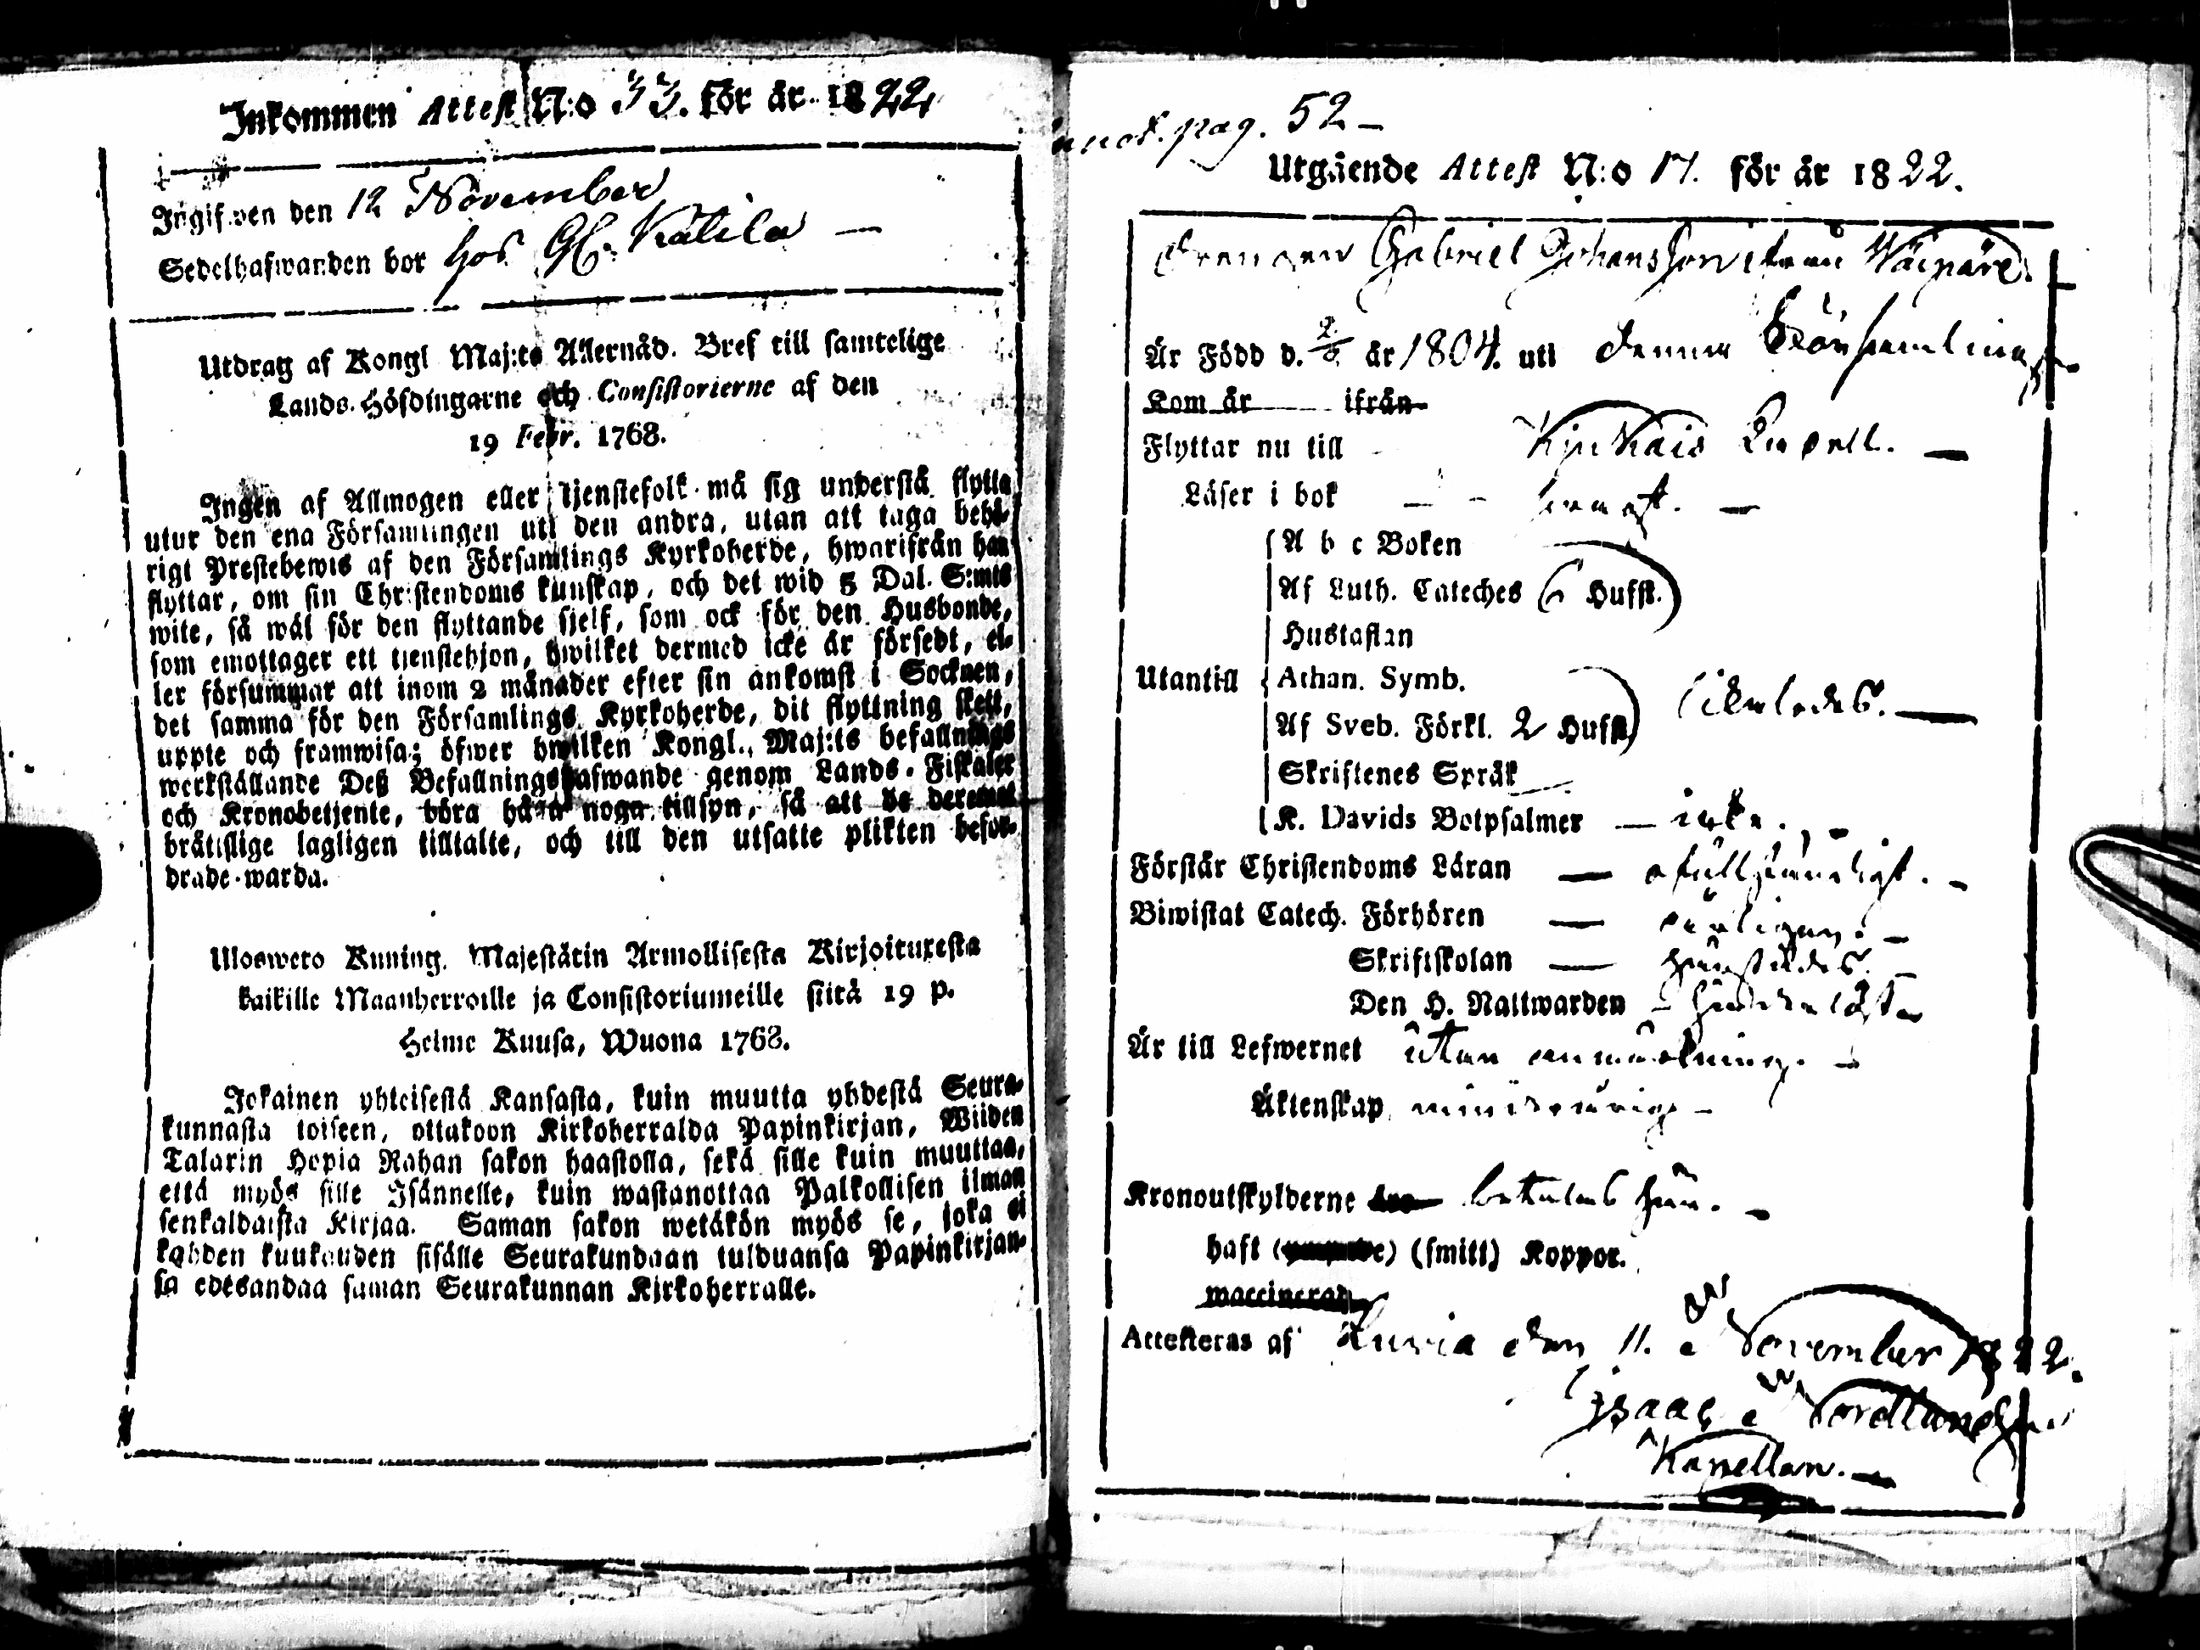 Inkommen Attest N:o 33. för år 1822
Ingifven den 12 November
Sedelhafwanden bor hos Gl. Katila —
Utdrag af Kongl Maj:ts Allernåd. Bref till samtelige
Lands-Höfdingarne och Consistorierne af den
19 Febr. 1768.
Ingen af Allmogen eller tjenstefolk må sig understå flytta
utur den ena Församlingen uti den andra, utan att taga behö-
rigt Prestebewis af den Församlings Kyrkoherde, hwarifrån han
flyttar, om sin Christendoms kunskap, och det wid 5 Dal. S:mts
wite, så wäl för den flyttande sjelf, som ock för den Husbonde,
som emottager ett tjenstehjon, hwilket dermed icke är försedt, el-
ler försummar att inom 2 månader efter sin ankomst i Socknen,
det samma för den Församlings Kyrkoherde, dit flyttning skett,
uppte och framwisa; öfwer hwilken Kongl. Maj:ts befallnings
werkställande Deß Befallningshafwande genom Lands-Fiskaler
och Kronobetjente, böra hafwa noga tillsyn, så att de deremot
bråttslige lagligen tilltalte, och till den utsatte plikten befor-
drade warda.
Uloswero Kuning. Majestätin Armollisesta Kirjoituxesta
kaikille Maanherroille ja Consistoriumeille siitä 19 p.
Helme Kuusa, Wuona 1768.
Jokainen yhteisestä Kansasta, kuin muutta yhdestä Seura-
kunnasta toiseen, ottakoon Kirkoherralda Papinkirjan, Wiiden
Talarin Hopia Rahan sakon haastolla, sekä sille kuin muuttaa,
että myös sille Isännelle, kuin wastanottaa Palkollisen ilman
senkaldaista Kirjaa. Saman sakon wetäkön myös se, joka ei
kahden kuukauden sisälle Seurakundaan tulduansa Papinkirjan-
sa edesandaa saman Seurakunnan Kirkoherralle.
pag. 52 —
Utgående Attest N:o 17. för år 1822.
Drengen Gabriel Johansson ifrån Wäipäre.
Är Född d. 2/3 år 1804. uti denna Församling
Kom år ifrån
Flyttar nu till Kjukais Capell. —
Läser i bok — - swagt. —
A b c Boken
Af Luth. Cateches 6 Hufst.
Hustaflan
Utantill Athan. Symb.
Af Sveb. Förkl. 2 Hufst. likaledes. —
Skriftenes Språk
K. Davids Botpsalmer — icke. —
Förstår Christendoms Läran — ofullständigt. —
Biwistat Catech. Förhören — årligen. —
Skriftskolan —
Den H. Nattwarden —
Är till Lefwernet utan anmärkning. —
Äktenskap minderårig —
Kronoutskylderne äro betalas här. —
haft (smitt) Koppor.
waccinerad
Attesteras af Luvia den 11. November 1822.
Isaac Nordlund
Kapellan. —